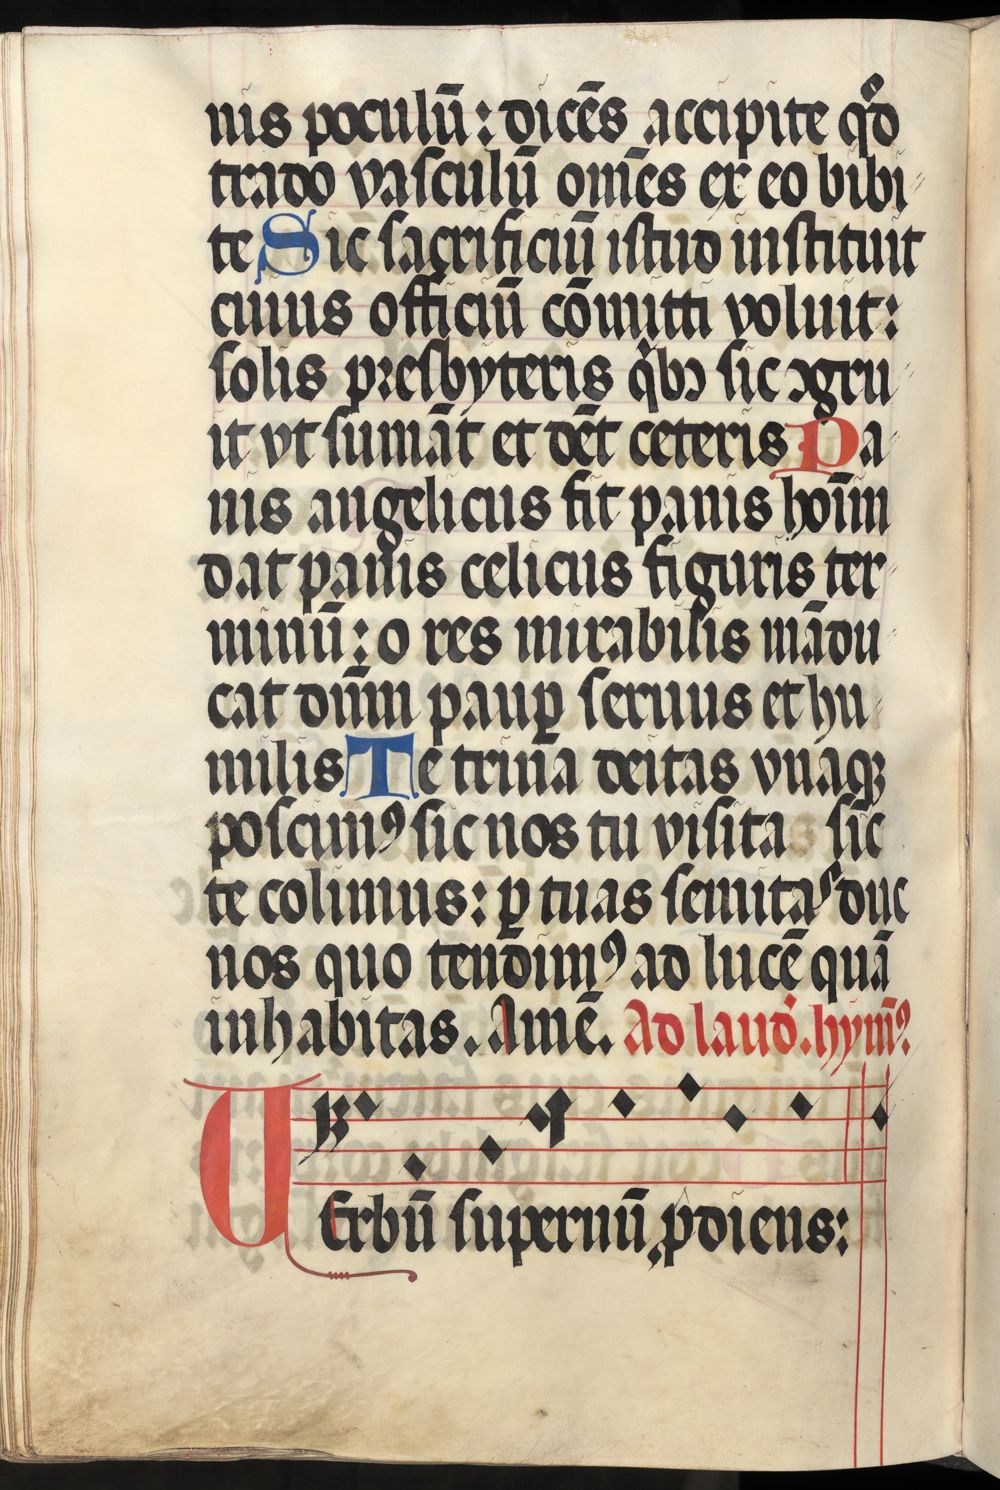 nis poculū: dicēs accipite qͦd
trado vasculū om̄es ex eo bibi⸗
te Sic sacrificiū istud instituit
cuius officiū cōmitti voluit:
solis presbyteris qͥbꝫ sic ꝯgru⸗
it vt sumāt et dēt ceteris Pa⸗
nis angelicus fit panis hoīm
dat panis celicus figuris ter⸗
minū: o res mirabilis mādu⸗
cat dn̄m paup̲ seruus et hu⸗
milis Te trina deitas vnaqꝫ
poscimꝰ sic nos tu visita sic
te colimus: ꝑ tuas semitas duc
nos quo tendimꝰ ad lucē quā
inhabitas. Amē. Ad laud̓. hym̄ꝰ.
Uerbū supernū ꝓdiens: